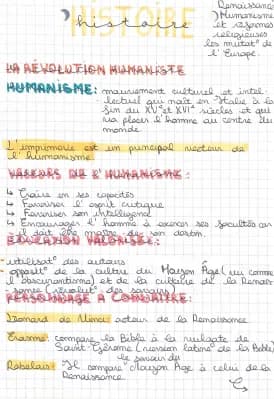 HISTOIRE
histoire
Renaissance
Humanisme
et réformes
religieuses
les mutat° de
l'Europe.
LA RÉVOLUTION HUMANISTE
HUMANISME: mouvement culturel et intel-
lectuel qui naît en Italie à la
fin du XVe et XVIe siècles et qui
va placer l'homme au centre du
monde
L'imprimerie est un principal vecteur de
l'humanisme.
VALEURS DE L'HUMANISME:
↳ Croire en ses capacités
↳ Favoriser l'esprit critique
↳ Favoriser son intelligence
↳ Encourager l'homme à exercer ses facultés car
il doit être maître de son destin.
ÉDUCATION VALORISÉE:
- utilisat° des auteurs
- opposit° de la culture du Moyen Âge (vu comme
l'obscurantisme) et de la culture de la Renais-
-sance (révolut° des savoirs)
PERSONNAGE À CONNAÎTRE:
Léonard de Vinci: acteur de la Renaissance
Erasme: compare la Bible à la vulgate de
Saint-Jérôme (version latine de la Bible)
le savoir du
Rabelais: Il compare Moyen Age à celui de la
Renaissance.